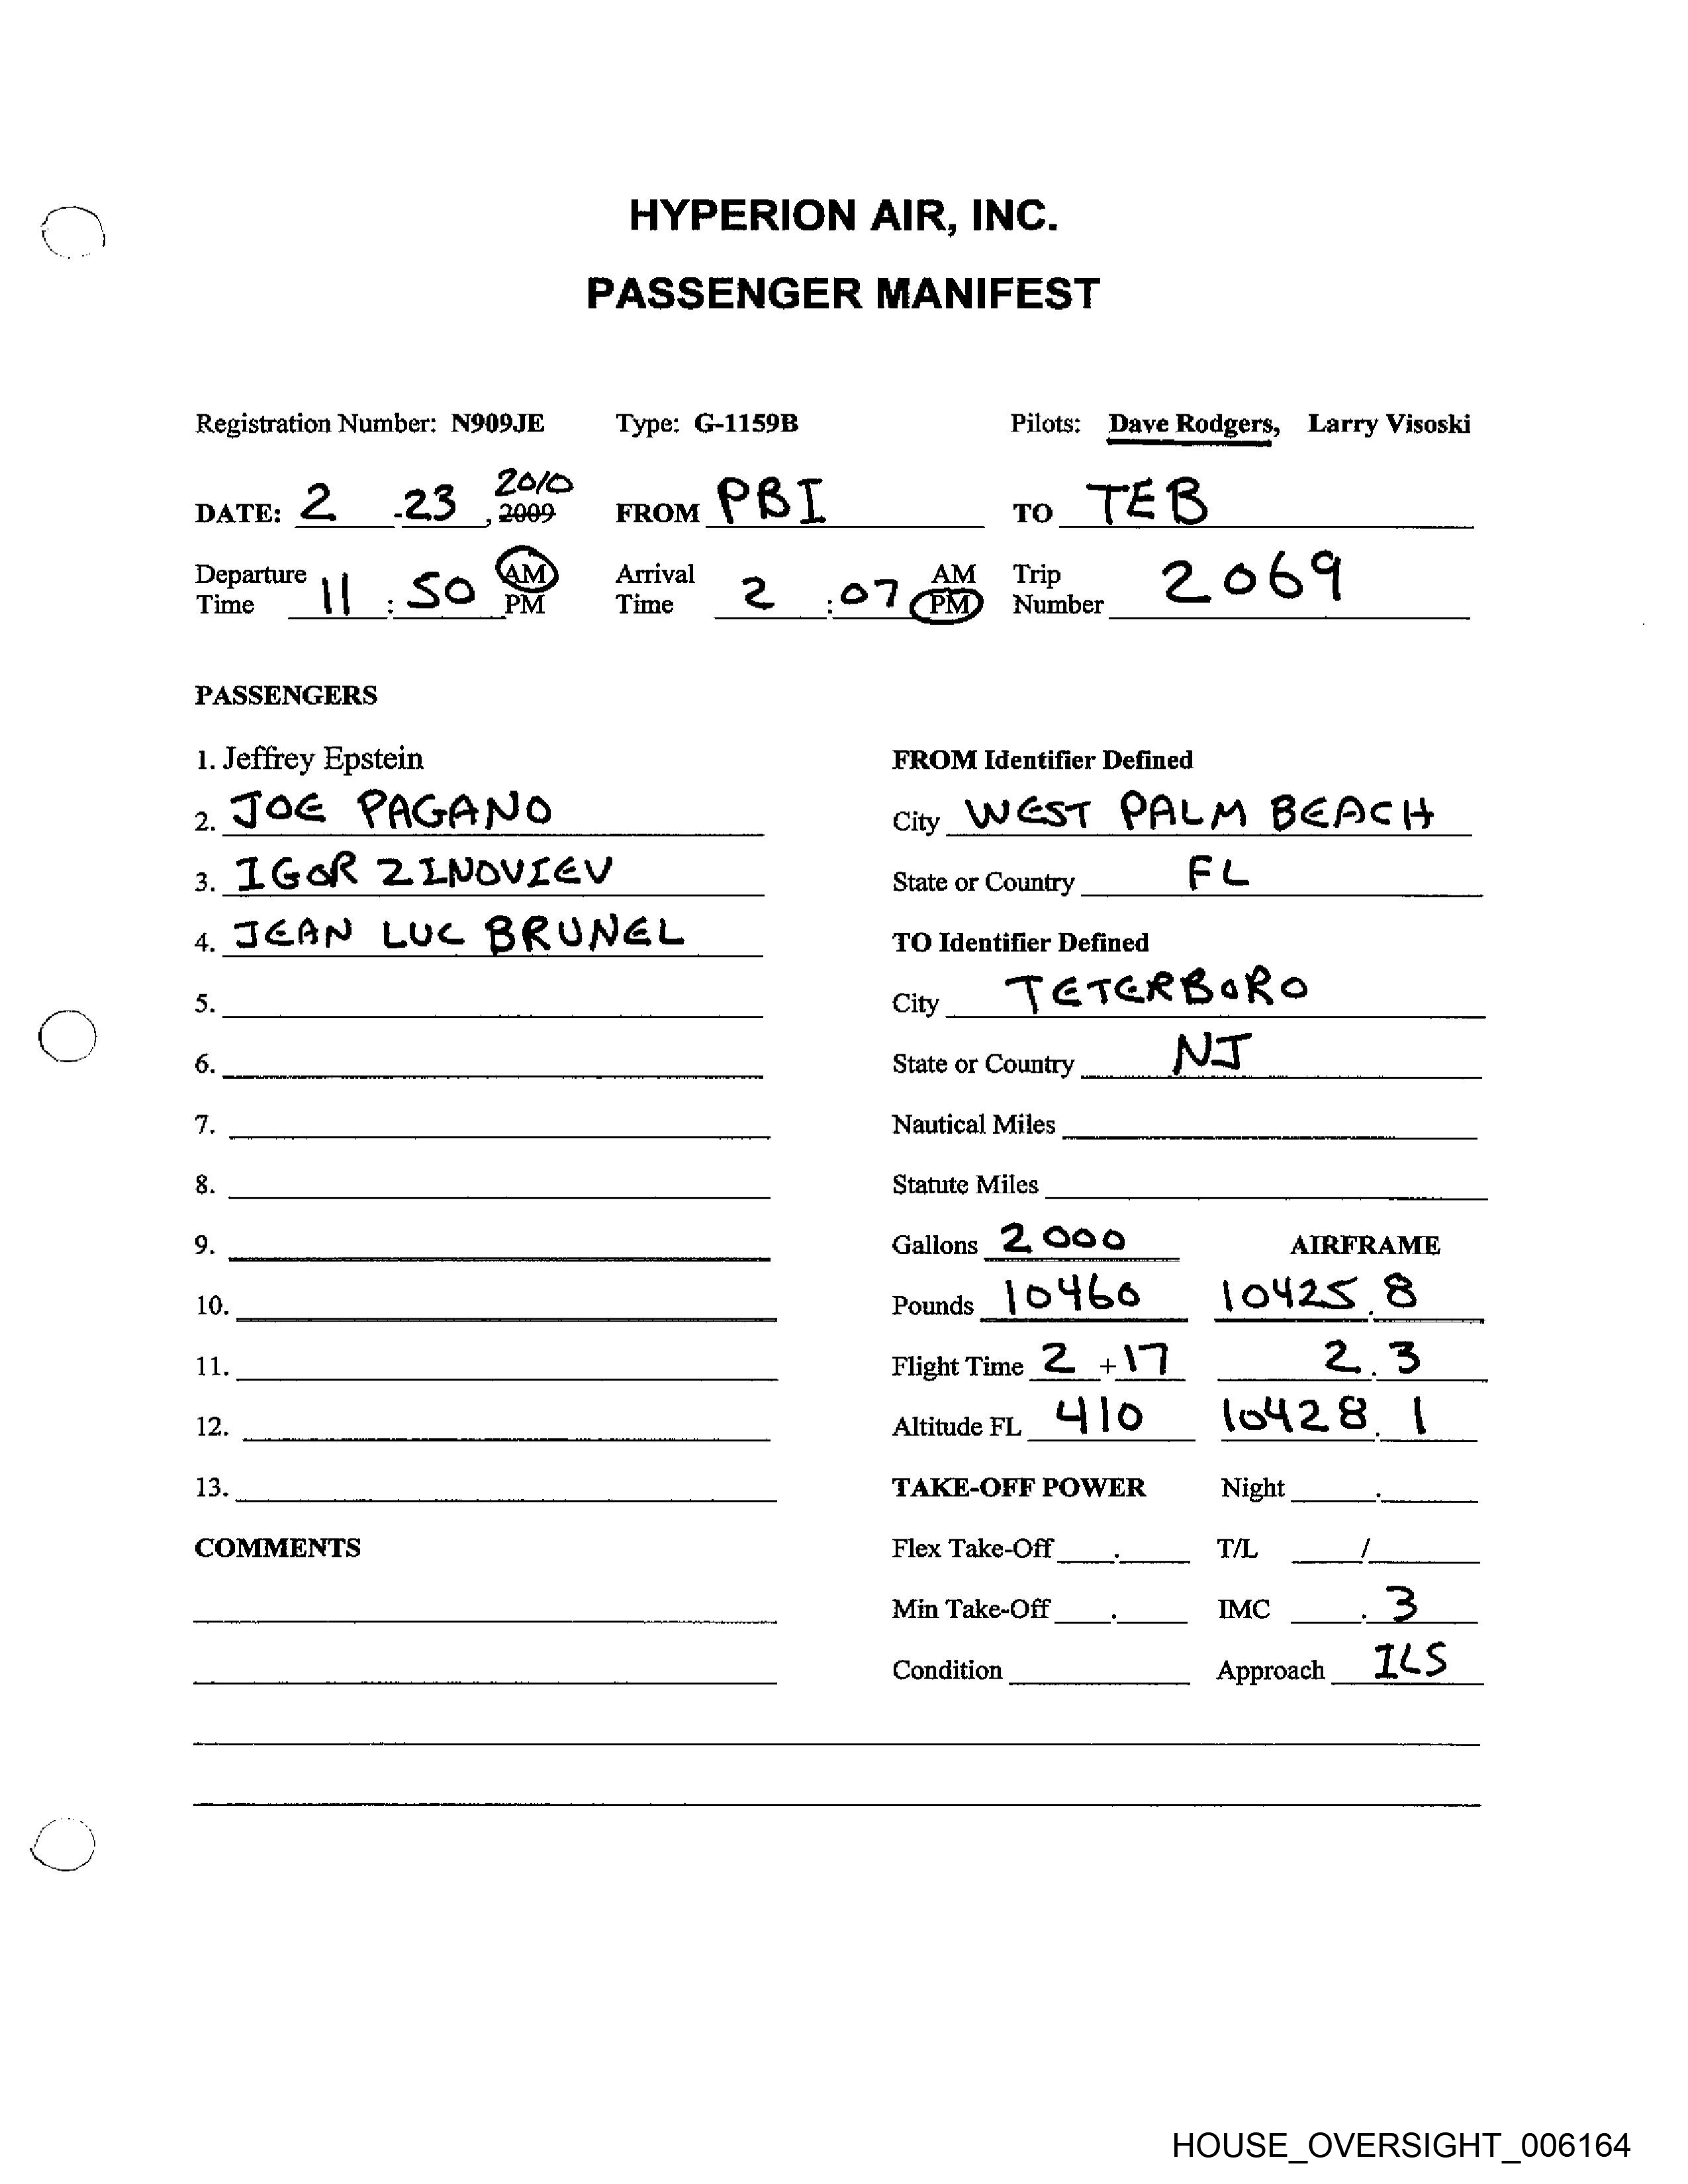 HYPERION AIR, INC.
PASSENGER MANIFEST
Registration Number: N909JE Type: G-1159B Pilots: Dave Rodgers, Larry Visoski
DATE: 2 - 23, 2009 2010 FROM PBI TO TEB
Departure Time 11 : 50 AM PM Arrival Time 2 : 07 AM PM Trip Number 2069
PASSENGERS
1. Jeffrey Epstein FROM Identifier Defined
2. JOE PAGANO City WEST PALM BEACH
3. IGOR ZINOVIEV State or Country FL
4. JEAN LUC BRUNEL TO Identifier Defined
5. City TETERBORO
6. State or Country NJ
7. Nautical Miles
8. Statute Miles
9. Gallons 2000 AIRFRAME
10. Pounds 10460 10425.8
11. Flight Time 2 + 17 2.3
12. Altitude FL 410 10428.1
13. TAKE-OFF POWER Night .
COMMENTS Flex Take-Off . T/L /
Min Take-Off . IMC . 3
Condition Approach ILS
HOUSE_OVERSIGHT_006164